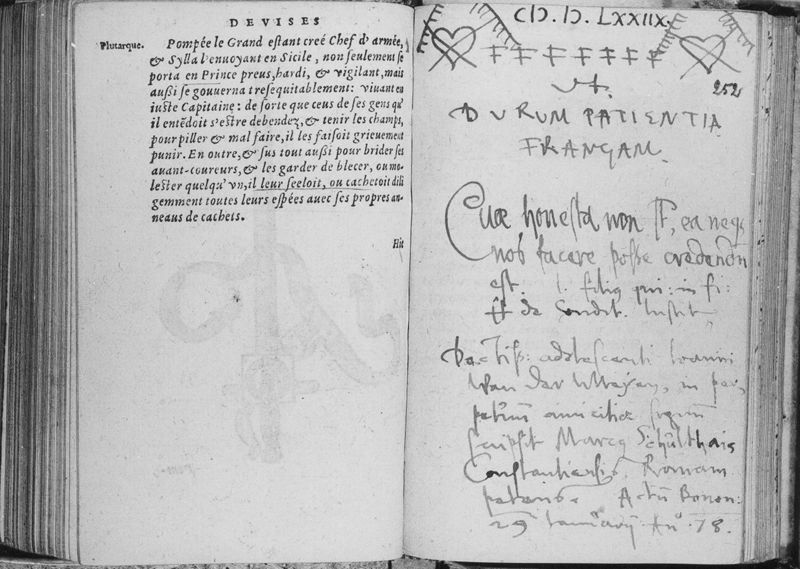 DEVISES
Plutarque.
Pompée le Grand estant creé Chef d'armée,
& Sylla l'enuoyant en Sicile, non seulement se
porta en Prince preus, hardi, & vigilant, mais
aussi se gouuerna tresequitablement: viuant en
iuste Capitaine: de sorte que ceus de ses gens qu'
il entẽdoit s'estre debendez, & tenir les champs,
pour piller & mal faire, il les faisoit grieuement
punir. En outre, & sus tout aussi pour brider ses
auant-coureurs, & les garder de blecer, ou mo-
lester quelqu'vn, il leur seeloit, ou cachetoit dili
gemment toutes leurs espées auec ses propres an-
neaus de cachets.
Hit
CIƆ. IƆ. LXXIIX.
252
Vt.
DVRUM PATIENTIA
FRANGAM.
Quæ honesta non st, ea neq
nos facere posse credendũ
est. l. filius qui: in fi:
ff de Condit. Instit
Doctiss: adolescenti Ioanni
Van der
amicitiæ signũ
scripsit Marcq Schulthais
Constantiensis. Romam
petens. Actũ Bonon:
29 Ianuarij Aº. 78.